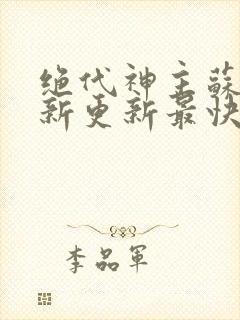 绝代神主蘇
新更新最快
李品軍